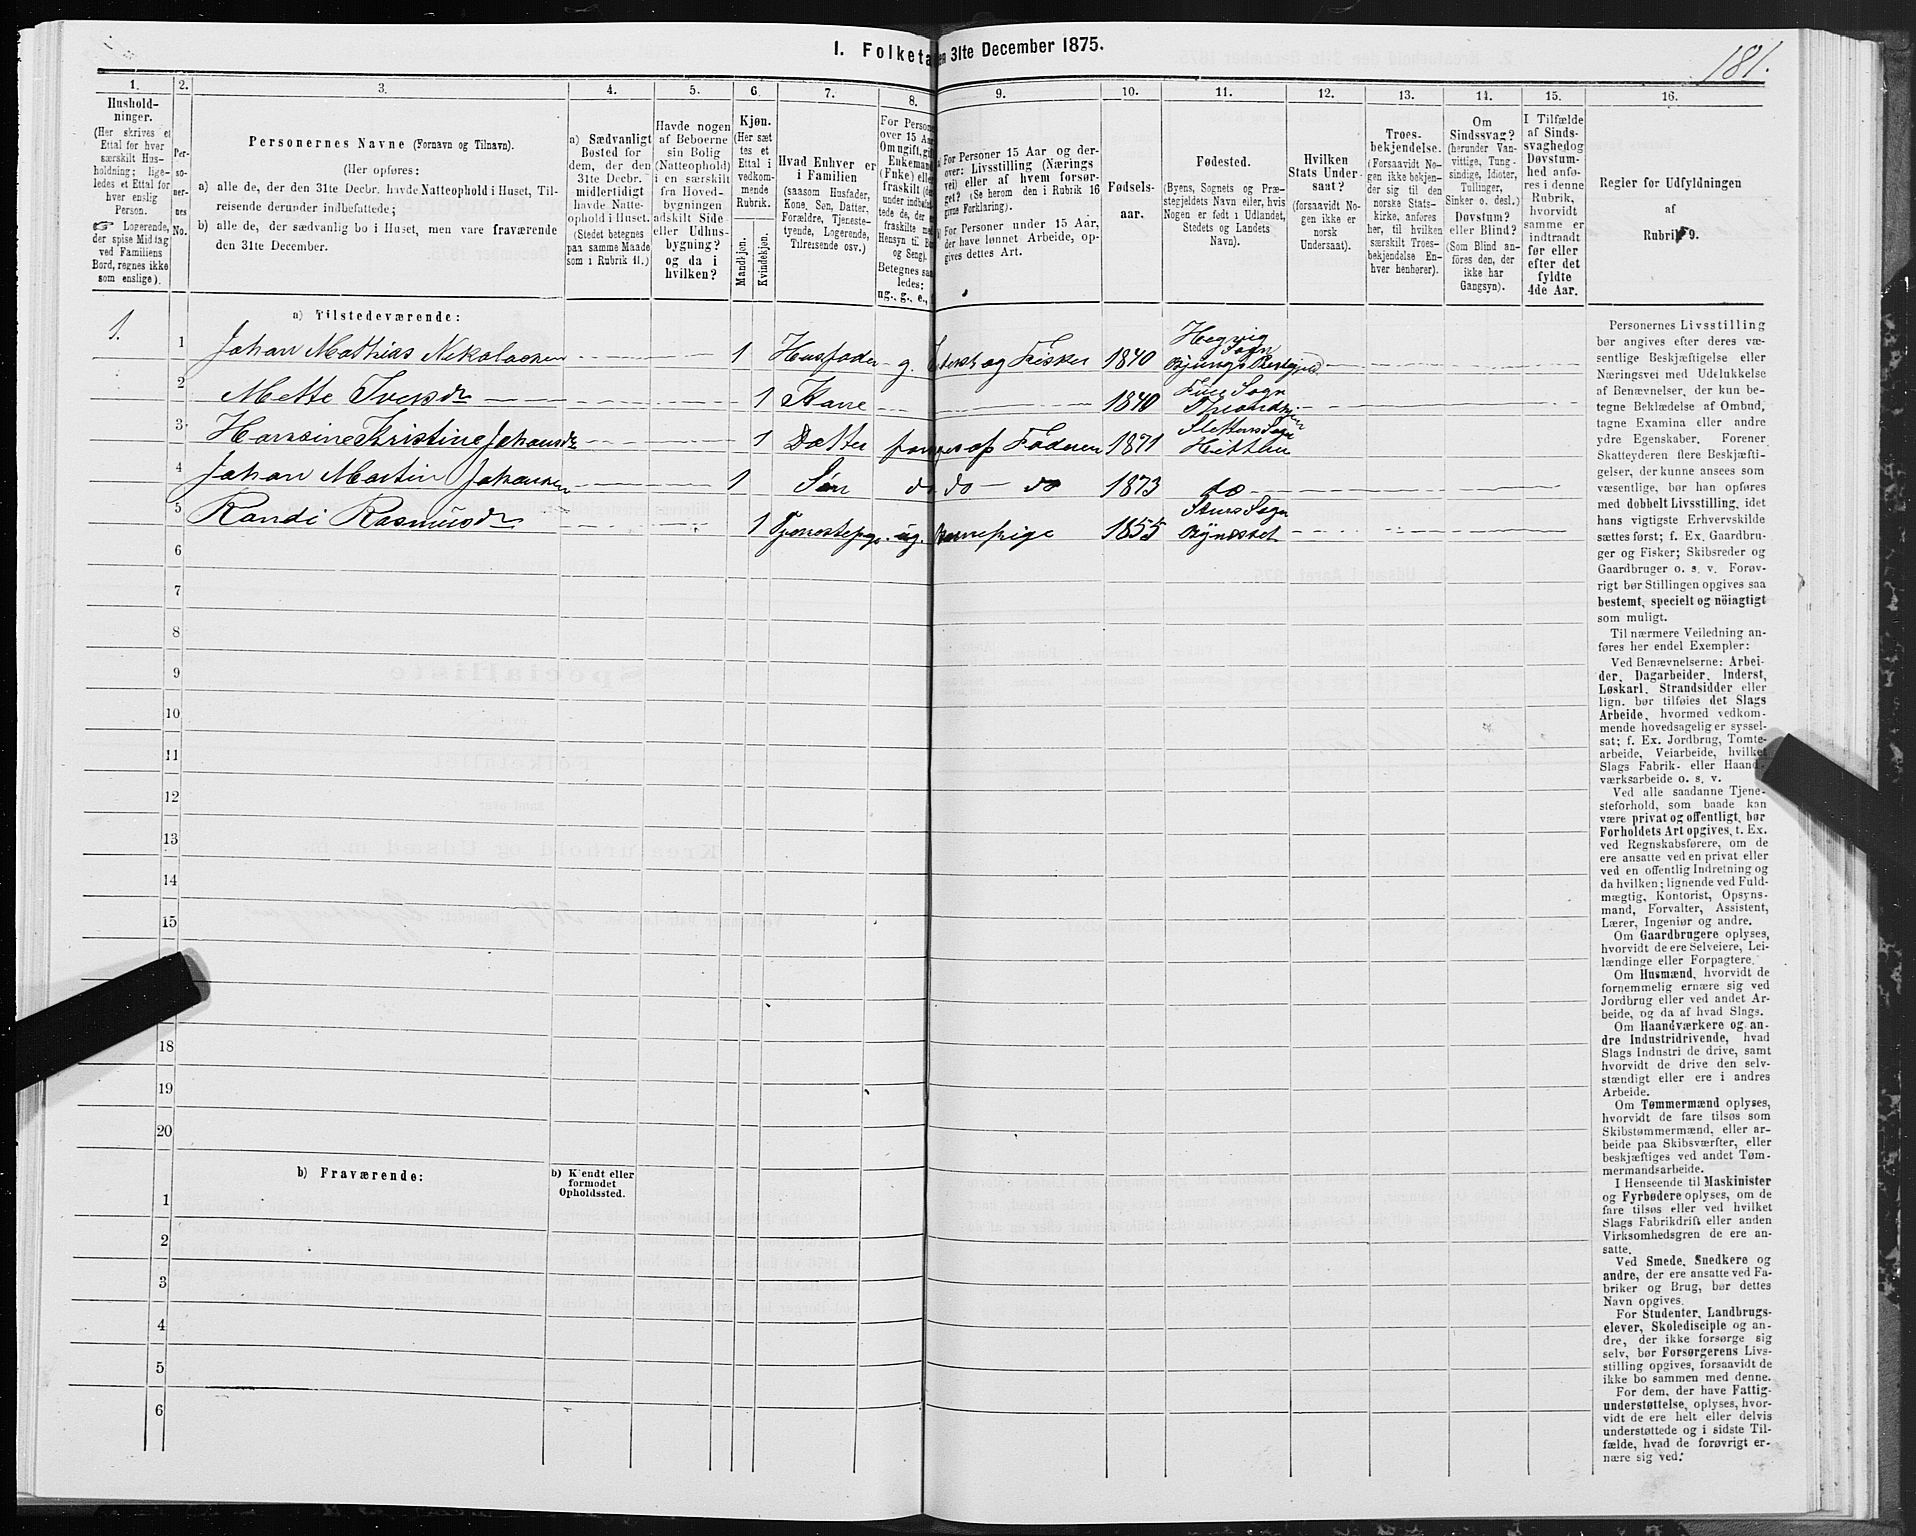 181.
I. Folketa
en 31te December 1875.
1.
2.
3.
4.
5.
6.
7.
8.
9.
10.
11.
12.
13.
14.
15.
16.
Hushold-
ninger.
(Her skrives et
Ettal for hver
særskilt Hus-
holdning; lige-
ledes et Ettal for
hver enslig
Person.
☞ Logerende,
der spise Middag
ved Familiens
Bord, regnes ikke
som enslige).
Per-
so-
ner-
nes
No.
Personernes Navne (Fornavn og Tilnavn).
(Her opføres:
a) alle de, der den 31te Decbr. havde Natteophold i Huset, Til-
reisende derunder indbefattede;
b) alle de, der sædvanlig bo i Huset, men vare fraværende
den 31te December.
a) Sædvanligt
Bosted for
dem, der den
31te Decbr.
midlertidigt
havde Natte-
ophold i Huset.
(Stedet betegnes
paa samme Maade
som i Rubrik 11.)
Havde nogen
af Beboerne
sin Bolig
(Natteophold)
i en særskilt
fra Hoved-
bygningen
adskilt Side
eller Udhus-
bygning?
og da i
hvilken?
Kjøn.
(Her sæt
tes et
Ettal i
vedkom-
mende
Rubrik.
Mandkjøn.
Kvindekjøn.
Hvad Enhver er
i Familien
(saasom Husfader,
Kone, Søn, Datter,
Forældre, Tjeneste-
tyende, Logerende,
Tilreisende osv.)
For Person
over 15 Aar
Om ugift, gift
Enkemand
(Enke) eller
fraskilt (der
under indbefat-
tede de, der er
fraskilte med
Hensyn til Bo
og Seng).
Betegnes saa
ledes:
ug., g., e.,
For Personer 15 Aar og der-
over: Livsstilling (Nærings
vei) eller af hvem forsør-
get? (Se herom den i Rubrik 16
givne Forklaring).
For Personer under 15 Aar,
der have lønnet Arbeide, op-
gives dettes Art.
Fødsels-
aar.
Fødested.
(Byens, Sognets og Præ-
stegjeldets Navn eller, hvis
Nogen er født i Udlandet,
Stedets og Landets
Navn).
Hvilken
Stats Under-
saat?
(forsaavidt No-
gen ikke er
norsk
Undersaat).
Troes-
bekjendelse.
(Forsaavidt No-
gen ikke bekjen-
der sig til den
norske Stats-
kirke, anføres
her, til hvilken
særskilt Troes-
bekjendelse En-
hver henhører).
Om
Sindssvag?
(herunder Van-
vittige, Tung-
sindige, Idioter,
Tullinger,
Sinker o. desl.)
Døvstum?
eller Blind?
(Som Blind an-
føres den, der
ikke har
Gangsyn).
I Tilfælde
af Sinds-
svaghed og
Døvstum-
hed anfø-
res i denne
Rubrik,
hvorvidt
samme er
indtraadt
før eller
efter det
fyldte
4de Aar.
Regler for Udfyldningen
af
Rubrik 9.
a) Tilstedeværende:
1.
1 Johan Mathias Nikolaisen 1 Husfader g. og Fisker 1840 Hegvig Sogn
2 Mette Iversdr 1 Kone 1840 Sogn
3 Hansine Kristine Johansdr 1 Datter af Faderen 1871 Hitteren
4 Johan Martin Johansen 1 Søn do do do 1873 do
5 Randi Rasmusdr 1 ug. Barnepige 1855 Sogn Bynesset
6
7
8
9
10
11
12
13
14
15
18
19
20
b) Fraværende:
b) Kjendt eller
formodet
Opholdssted.
1
2
3
4
5
6
Personernes Livsstilling
bør angives efter deres væ-
sentlige Beskjæftigelse eller
Næringsvei med Udelukkelse
af Benævnelser, der kun be-
tegne Beklædelse af Ombud,
tagne Examina eller andre
ydre Egenskaber. Forener
Skatteyderen flere Beskjæfti-
gelser, der kunne ansees som
væsentlige, bør han opføres
med dobbelt Livsstilling, idet
hans vigtigste Erhvervskilde
sættes først; f. Ex. Gaardbru-
ger og Fisker; Skibsreder og
Gaardbruger o. s. v. Forøv-
rigt bør Stillingen opgives saa
bestemt, specielt og nöiagtigt
som muligt.
Til nærmere Veiledning an-
føres her endel Exempler:
Ved Benævnelserne: Arbei-
der, Dagarbeider, Inderst,
Løskarl, Strandsidder eller
lign. bør tilføies det Slags
Arbeide, hvormed vedkom-
mende hovedsagelig er syssel-
sat; f. Ex. Jordbrug, Tomte-
arbeide, Veiarbeide, hvilket
Slags Fabrik- eller Haand-
værksarbeide o. s. v.
Ved alle saadanne Tjene-
steforhold, som baade kan
være privat og offentligt, bør
Forholdets Art opgives, t. Ex.
ved Regnskabsførere, om de
ere ansatte ved en privat eller
ved en offentlig Indretning og
da hvilken; lignende ved Fuld-
mægtig, Kontorist, Opsyns-
mand, Forvalter, Assistent,
Lærer, Ingeniør og andre.
Om Gaardbrugere oplyses,
hvorvidt de ere Selveiere, Lei-
lændinge eller Forpagtere.
Om Husmænd, hvorvidt de
fornemmelig ernære sig ved
Jordbrug eller ved andet Ar-
beide, og da af hvad Slags.
Om Haandværkere og an-
dre Industridrivende, hvad
Slags Industri de drive, samt
hvorvidt de drive den selv-
stændigt eller ere i andres
Arbeide.
Om Tømmermænd oplyses,
hvorvidt de fare tilsøs som
Skibstømmermænd, eller ar-
beide paa Skibsværfter, eller
beskjæftiges ved andet Tøm-
mermandsarbeide.
I Henseende til Maskinister
og Fyrbødere oplyses, om de
fare tilsøs eller ved hvilket
Slags Fabrikdrift eller anden
Virksomhedsgren de ere an-
satte.
Ved Smede, Snedkere og
andre, der ere ansatte ved Fa-
briker og Brug, bør dettes
Navn opgives.
For Studenter, Landbrugs-
elever, Skoledisciple og an-
dre, der ikke forsørge sig
selv, bør Forsørgerens Livs-
stilling opgives, forsaavidt de
ikke bo sammen med denne.
For dem, der have Fattig-
understøttelse, oplyses, hvor-
vidt de ere helt eller delvis
understøttede og i sidste Til-
fælde, hvad de forøvrigt er-
nære sig ved.